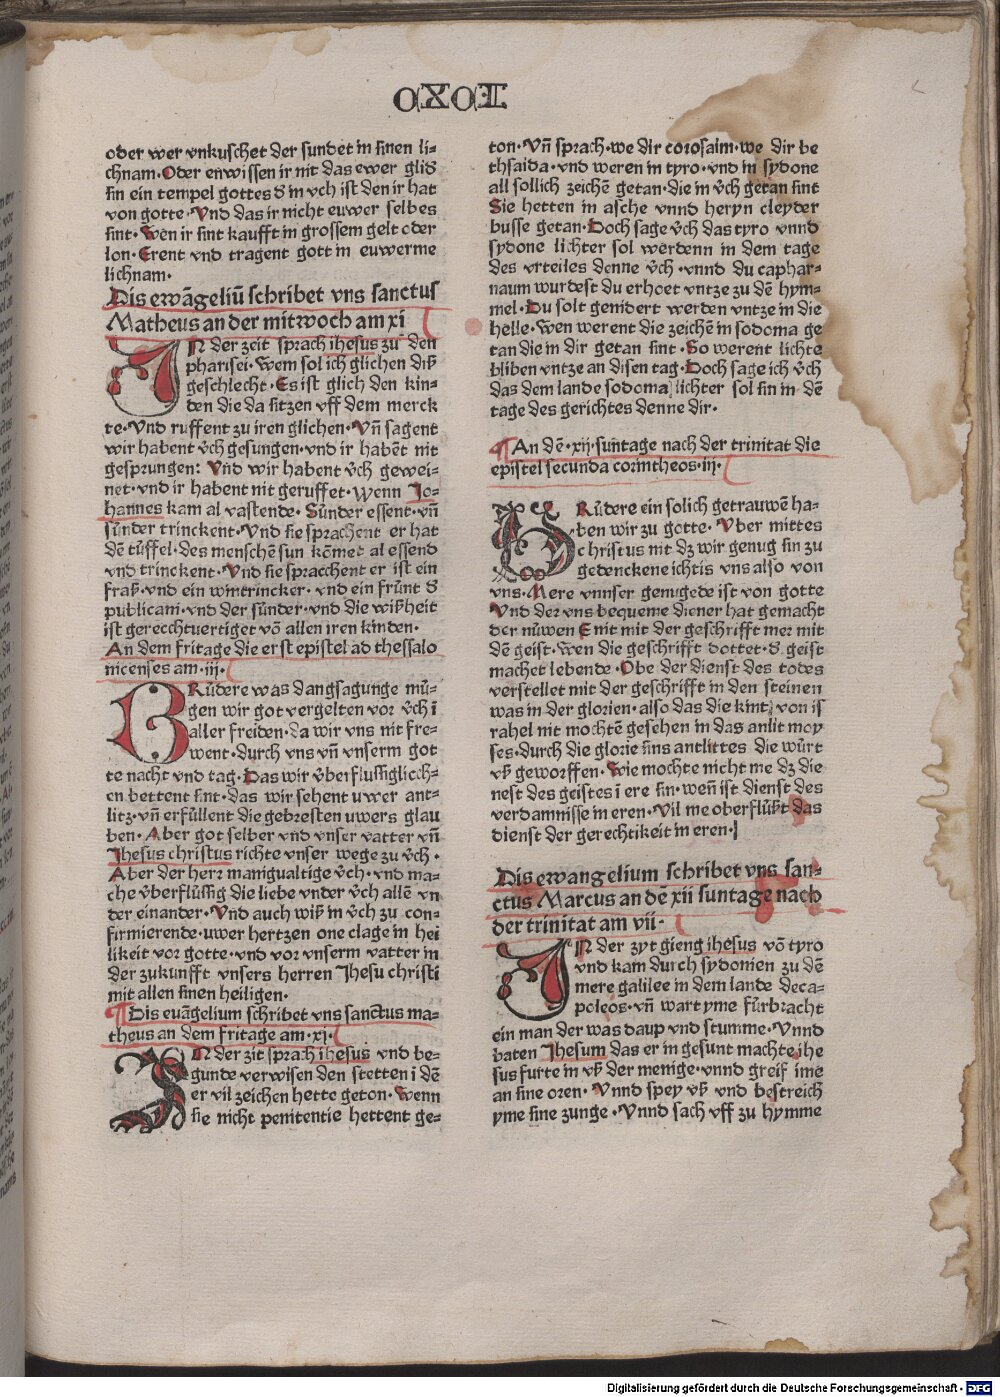 CXCI
oder wer vnkuschet der sundet in sinen li=
chnam. Oder enwissen ir nit das ewer glið
sin ein tempel gottes ð in vch ist den ir hat
von gotte. Vnd das ir nicht euwer selbes
sint. Wen ir sint kaufft in grossem gelt oder
lon. Erent vnd tragent gott in euwerme
lichnam.
Dis ewãgeliũ schribet vns sanctus
Matheus an der mitwoch am xi
IN der zeit sprach ihesus zu den
pharisei. Wem sol ich glichen diß
geschlecht. Es ist glich den kin=
den die da sitzen vff dem merck
te. Vnd ruffent zu iren glichen. Vñ sagent
wir habent vͤch gesungen. vnd ir habẽt nit
gesprungen: Vnd wir habent vͤch gewei=
net. vnd ir habent nit geruffet. Wenn Jo=
hannes kam al vastende. Sünder essent. vñ
sünder trinckent. Vnd sie sprachent er hat
dẽ tüffel. des menschẽ sun kõmet al essend
vnd trinckent. Vnd sie spracchent er ist ein
fraß. vnd ein wintrincker. vnd ein fründ ð
publicani. vnd der sünder. vnd die wißheit
ist gerecchtvertiget võ allen iren kinden.
An dem fritage die erst epistel ad thessalo
nicenses am. iii.
BRüdere was dangsagunge mü=
gen wir got vergelten vor vͤch ĩ
aller freiden. da wir vns mit fre=
went. durch vns vñ vnserm got
te nacht vnd tag. Das wir vͤberflussiglicch=
en bettent sint. das wir sehent uwer ant=
litz. vñ erfüllent die gebresten uwers glau
ben. Aber got selber vnd vnser vatter vñ
Jhesus christus richte vnser wege zu vͤch.
Aber der herr manigualtige vͤch. vnd ma=
che vͤberflüssig die liebe vnder vͤch allẽ vn
der einander. Vnd auch wiß in vͤch zu con=
firmierende. uwer hertzen one clage in hei
likeit vor gotte. vnd vor vnserm vatter in
der zukunfft vnsers herren Jhesu christi
mit allen sinen heiligen.
¶ Dis euãgelium schribet vns sanctus ma=
theus an dem fritage am. xi.
IN der zit sprach ihesus vnd be=
gunde verwisen den stetten ĩ dẽ
er vil zeichen hette geton. Wenn
sie nicht penitentie hettent ge=
ton. Vñ sprach. we dir corosaim. we dir be
thsaida. vnd weren in tyro. vnd in sydone
all sollich zeichẽ getan. die in vͤch getan sint
Sie hetten in asche vnnd heryn cleyder
busse getan. Doch sage vͤch das tyro vnnd
sydone lichter sol werdenn in dem tage
des vrteiles denne vͤch. vnnd du caphar=
naum wurdest du erhoet vntze zu dẽ hym=
mel. Du solt genidert werden vntze in die
helle. Wen werent die zeichẽ in sodoma ge
tan die in dir getan sint. So werent lichte
bliben vntze an disen tag. Doch sage ich vͤch
das dem lande sodoma lichter sol sin in dẽ
tage des gerichtes denne dir.
¶ An dẽ. xij. suntage nach der trinitat die
epistel secunda corintheos. iij.
BRüdere ein solich getrauwẽ ha=
ben wir zu gotte. Vber mittes
christus nit dz wir genug sin zu
gedenckene ichtis vns also von
vns. Mere vnnser genugede ist von gotte
Vnd der vns bequeme diener hat gemacht
der nüwen E nit mit der geschrifft mer mit
dẽ geist. wen die geschrifft dottet. ð. geist
machet lebende. Obe der dienst des todes
verstellet mit der geschrifft in den steinen
was in der glorien. also das die kint von is
rahel nit mochtẽ gesehen in das anlit moy
ses. durch die glorie sins antlittes die würt
vß geworffen. Wie mochte nicht me dz die
nest des geistes ĩ ere sin. weñ ist dienst des
verdamnisse in eren. Vil me oberflüßt das
dienst der gerechtikeit in eren.
Dis ewangelium schribet vns san=
ctus Marcus an dẽ xii suntage nach
der trinitat am vii.
IN der zyt gieng ihesus võ tyro
vnd kam durch sydonien zu dẽ
mere galilee in dem lande deca=
poleos. vñ wart yme fürbracht
ein man der was daup vnd stumme. Vnnd
baten Jhesum das er in gesunt machte ihe
sus furte in vß der menige. vnnd greif ime
an sine oren. Vnnd spey vß vnd bestreich
yme sine zunge. Vnnd sach vff zu hymme
Digitalisierung gefördert durch die Deutsche Forschungsgemeinschaft - DFG